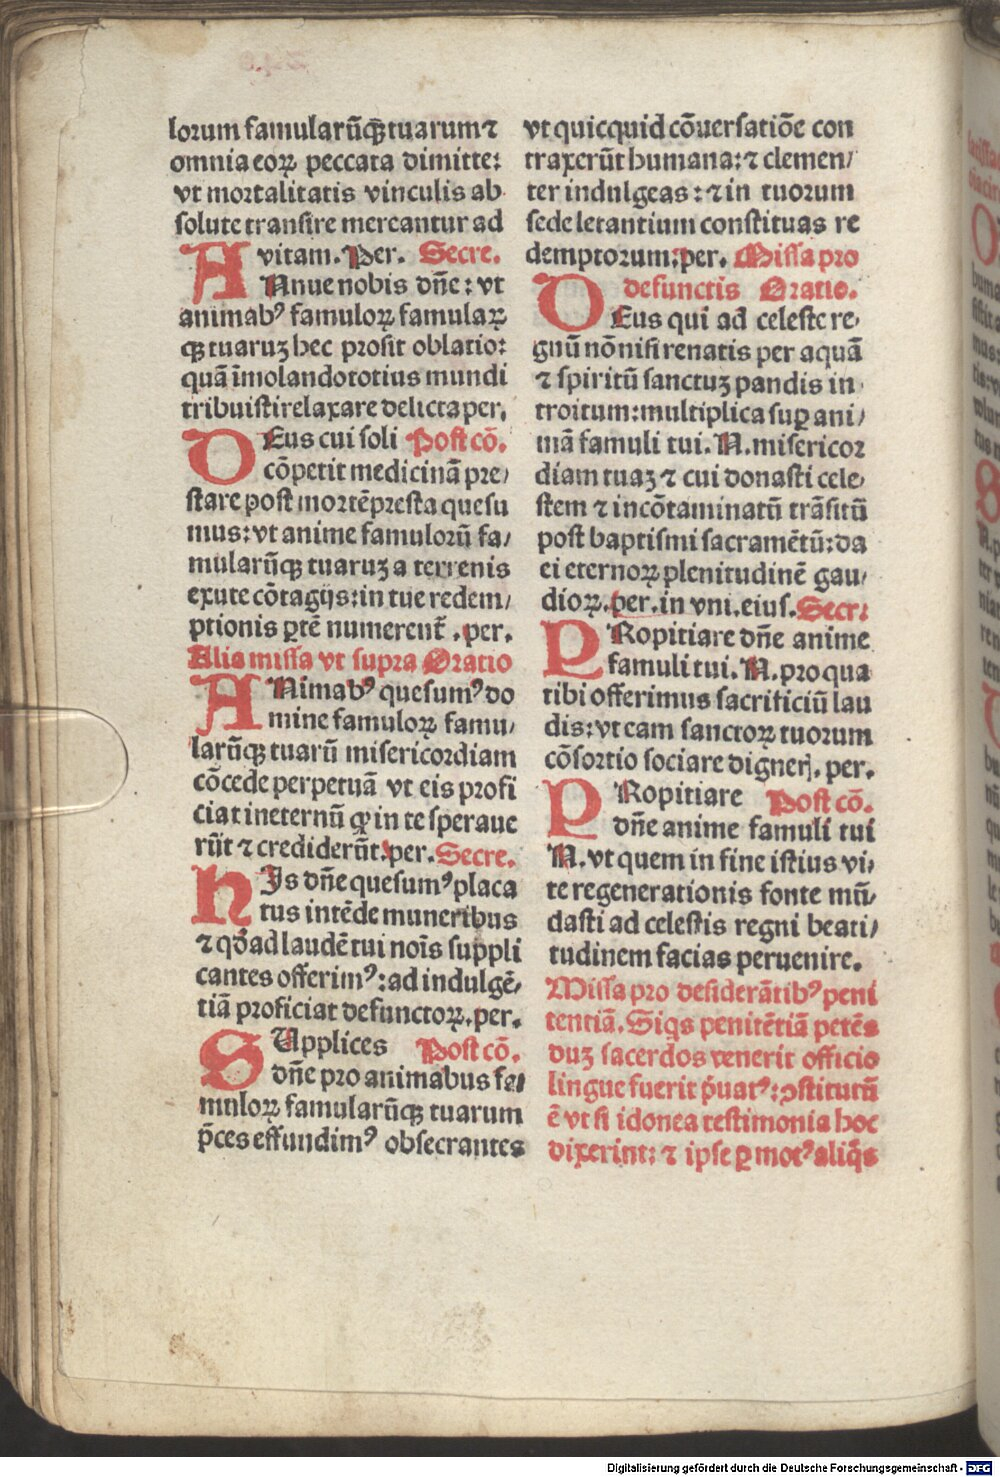 lorum famularūq̄ꝫ tuarum ⁊
omnia eorꝝ peccata dimitte:
vt mortalitatis vinculis ab
solute transire mereantur ad
vitam. Per. Secre.
ANnue nobis dn̄e: vt
animabꝰ famulorꝝ famularꝝ
qꝫ tuaruꝫ hec prosit oblatio:
quā īmolando totius mundi
tribuisti relaxare delicta per.
DEus cui soli Post cō.
cōpetit medicinā pre/
stare post mortē presta quesu
mus: vt anime famulorū fa/
mularūqꝫ tuaruꝫ a terrenis
exute cōtagijs: in tue redem/
ptionis ꝑtē numerent᷑. per.
Alia missa vt supra Oratio
ANimabꝰ quesumꝰ do
mine famulorꝝ famu/
larūqꝫ tuarū misericordiam
cōcede perpetuā vt eis profi
ciat in eternū ꝙ in te speraue
rūt ⁊ crediderūt. per. Secre.
HIs dn̄e quesumꝰ placa
tus intēde muneribus
⁊ qd̓ ad laudē tui nois̄ suppli
cantes offerimꝰ: ad indulgē/
tiā proficiat defunctorꝝ. per.
SUpplices Post cō.
dn̄e pro animabus fa/
mulorꝝ famularūqꝫ tuarum
p̄ces effundimꝰ obsecrantes
vt quicquid cōuersatiōe con
traxerūt humana: ⁊ clemen/
ter indulgeas: ⁊ in tuorum
sede letantium constituas re
demptorum. per. Missa pro
defunctis Oratio.
DEus qui ad celeste re/
gnū nō nisi renatis per aquā
⁊ spiritū sanctuꝫ pandis in/
troitum: multiplica suꝑ ani/
mā famuli tui. N. misericor
diam tuaꝫ ⁊ cui donasti cele/
stem ⁊ incōtaminatū trāsitū
post baptismi sacramētū: da
ei eternorꝝ plenitudinē gau/
diorꝝ. per. in vni. eius. Secr:
PRopitiare dn̄e anime
famuli tui. N. pro qua
tibi offerimus sacrificiū lau
dis: vt eam sanctorꝝ tuorum
cōsortio sociare digneꝶ. per.
PRopitiare Post cō.
dn̄e anime famuli tui
N. vt quem in fine istius vi/
te regenerationis fonte mū/
dasti ad celestis regni beati/
tudinem facias peruenire.
Missa pro desiderātibꝰ peni
tentiā. Siqs penitētiā petēs
duꝫ sacerdos venerit officio
lingue fuerit p̓uatꝰ: ꝯstitutū
ē vt si idonea testimonia hoc
dixerint: ⁊ ipse ꝑ motꝰ aliq̄s
Digitalisierung gefördert durch die Deutsche Forschungsgemeinschaft - DFG